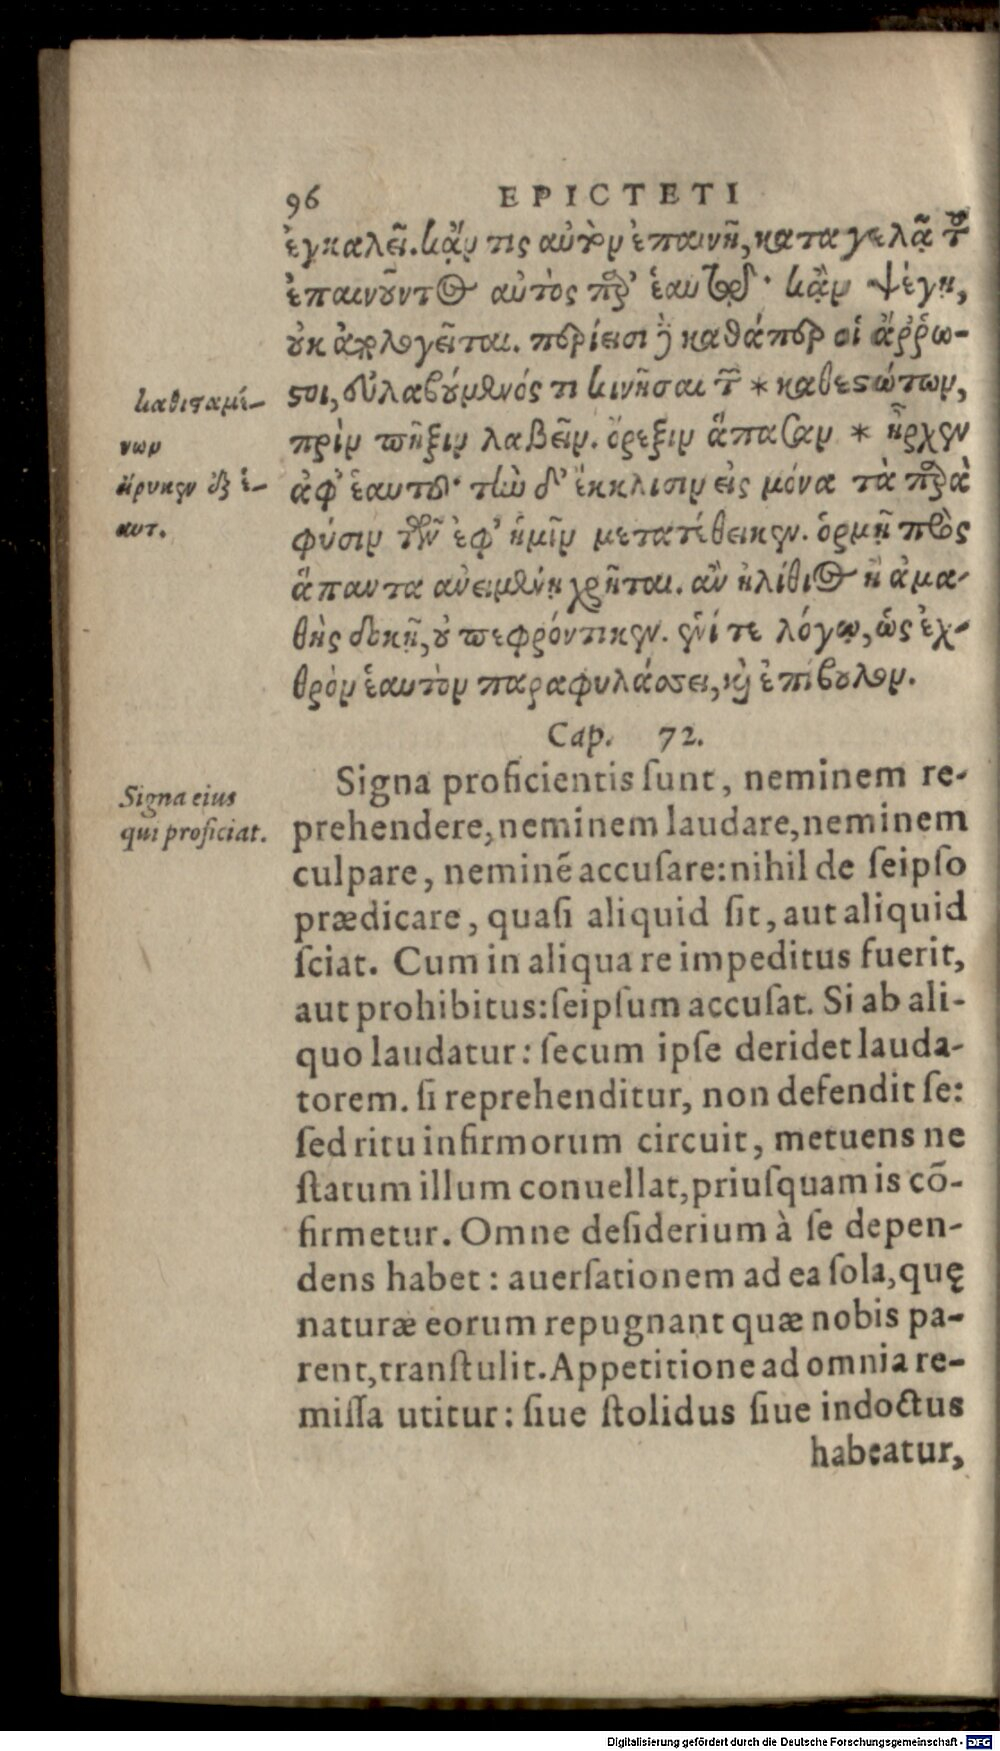 96 EPICTETI
ἐγκαλεῖ. κἄν τις αὐτὸν ἐπαινῇ, καταγελᾷ τοῦ
ἐπαινοῦντος αὐτὸς παρ' ἑαυτῷ· κἂν ψέγῃ,
οὐκ ἀπολογεῖται. περίεισι δὲ καθάπερ οἱ ἄῤῥω-
στοι, εὐλαβούμενός τι κινῆσαι τῶν * καθεστώτων,
πρὶν πῆξιν λαβεῖν. ὄρεξιν ἅπασαν * ἦρκεν
ἀφ' ἑαυτοῦ· τὴν δ' ἔκκλισιν εἰς μόνα τὰ παρὰ
φύσιν τῶν ἐφ' ἡμῖν μετατέθεικεν. ὁρμῇ πρὸς
ἅπαντα ἀνειμένῃ χρῆται. ἂν ἠλίθιος ἢ ἀμα-
θὴς δοκῇ, οὐ πεφρόντικεν. ἑνί τε λόγῳ, ὡς ἐχ-
θρὸν ἑαυτὸν παραφυλάσσει, καὶ ἐπίβουλον.
καθισαμέ-
νων
ἤρηκεν ἐξ ἑ-
αυτ.
Cap. 72.
Signa eius
qui proficiat.
Signa proficientis ſunt, neminem re-
prehendere, neminem laudare, neminem
culpare, neminẽ accuſare: nihil de ſeipſo
prædicare, quaſi aliquid ſit, aut aliquid
ſciat. Cum in aliqua re impeditus fuerit,
aut prohibitus: ſeipſum accuſat. Si ab ali-
quo laudatur: ſecum ipſe deridet lauda-
torem. ſi reprehenditur, non defendit ſe:
ſed ritu infirmorum circuit, metuens ne
ſtatum illum conuellat, priuſquam is cõ-
firmetur. Omne deſiderium à ſe depen-
dens habet: auerſationem ad ea ſola, quę
naturæ eorum repugnant quæ nobis pa-
rent, tranſtulit. Appetitione ad omnia re-
miſſa utitur: ſiue ſtolidus ſiue indoctus
habeatur,
Digitalisierung gefördert durch die Deutsche Forschungsgemeinschaft - DFG